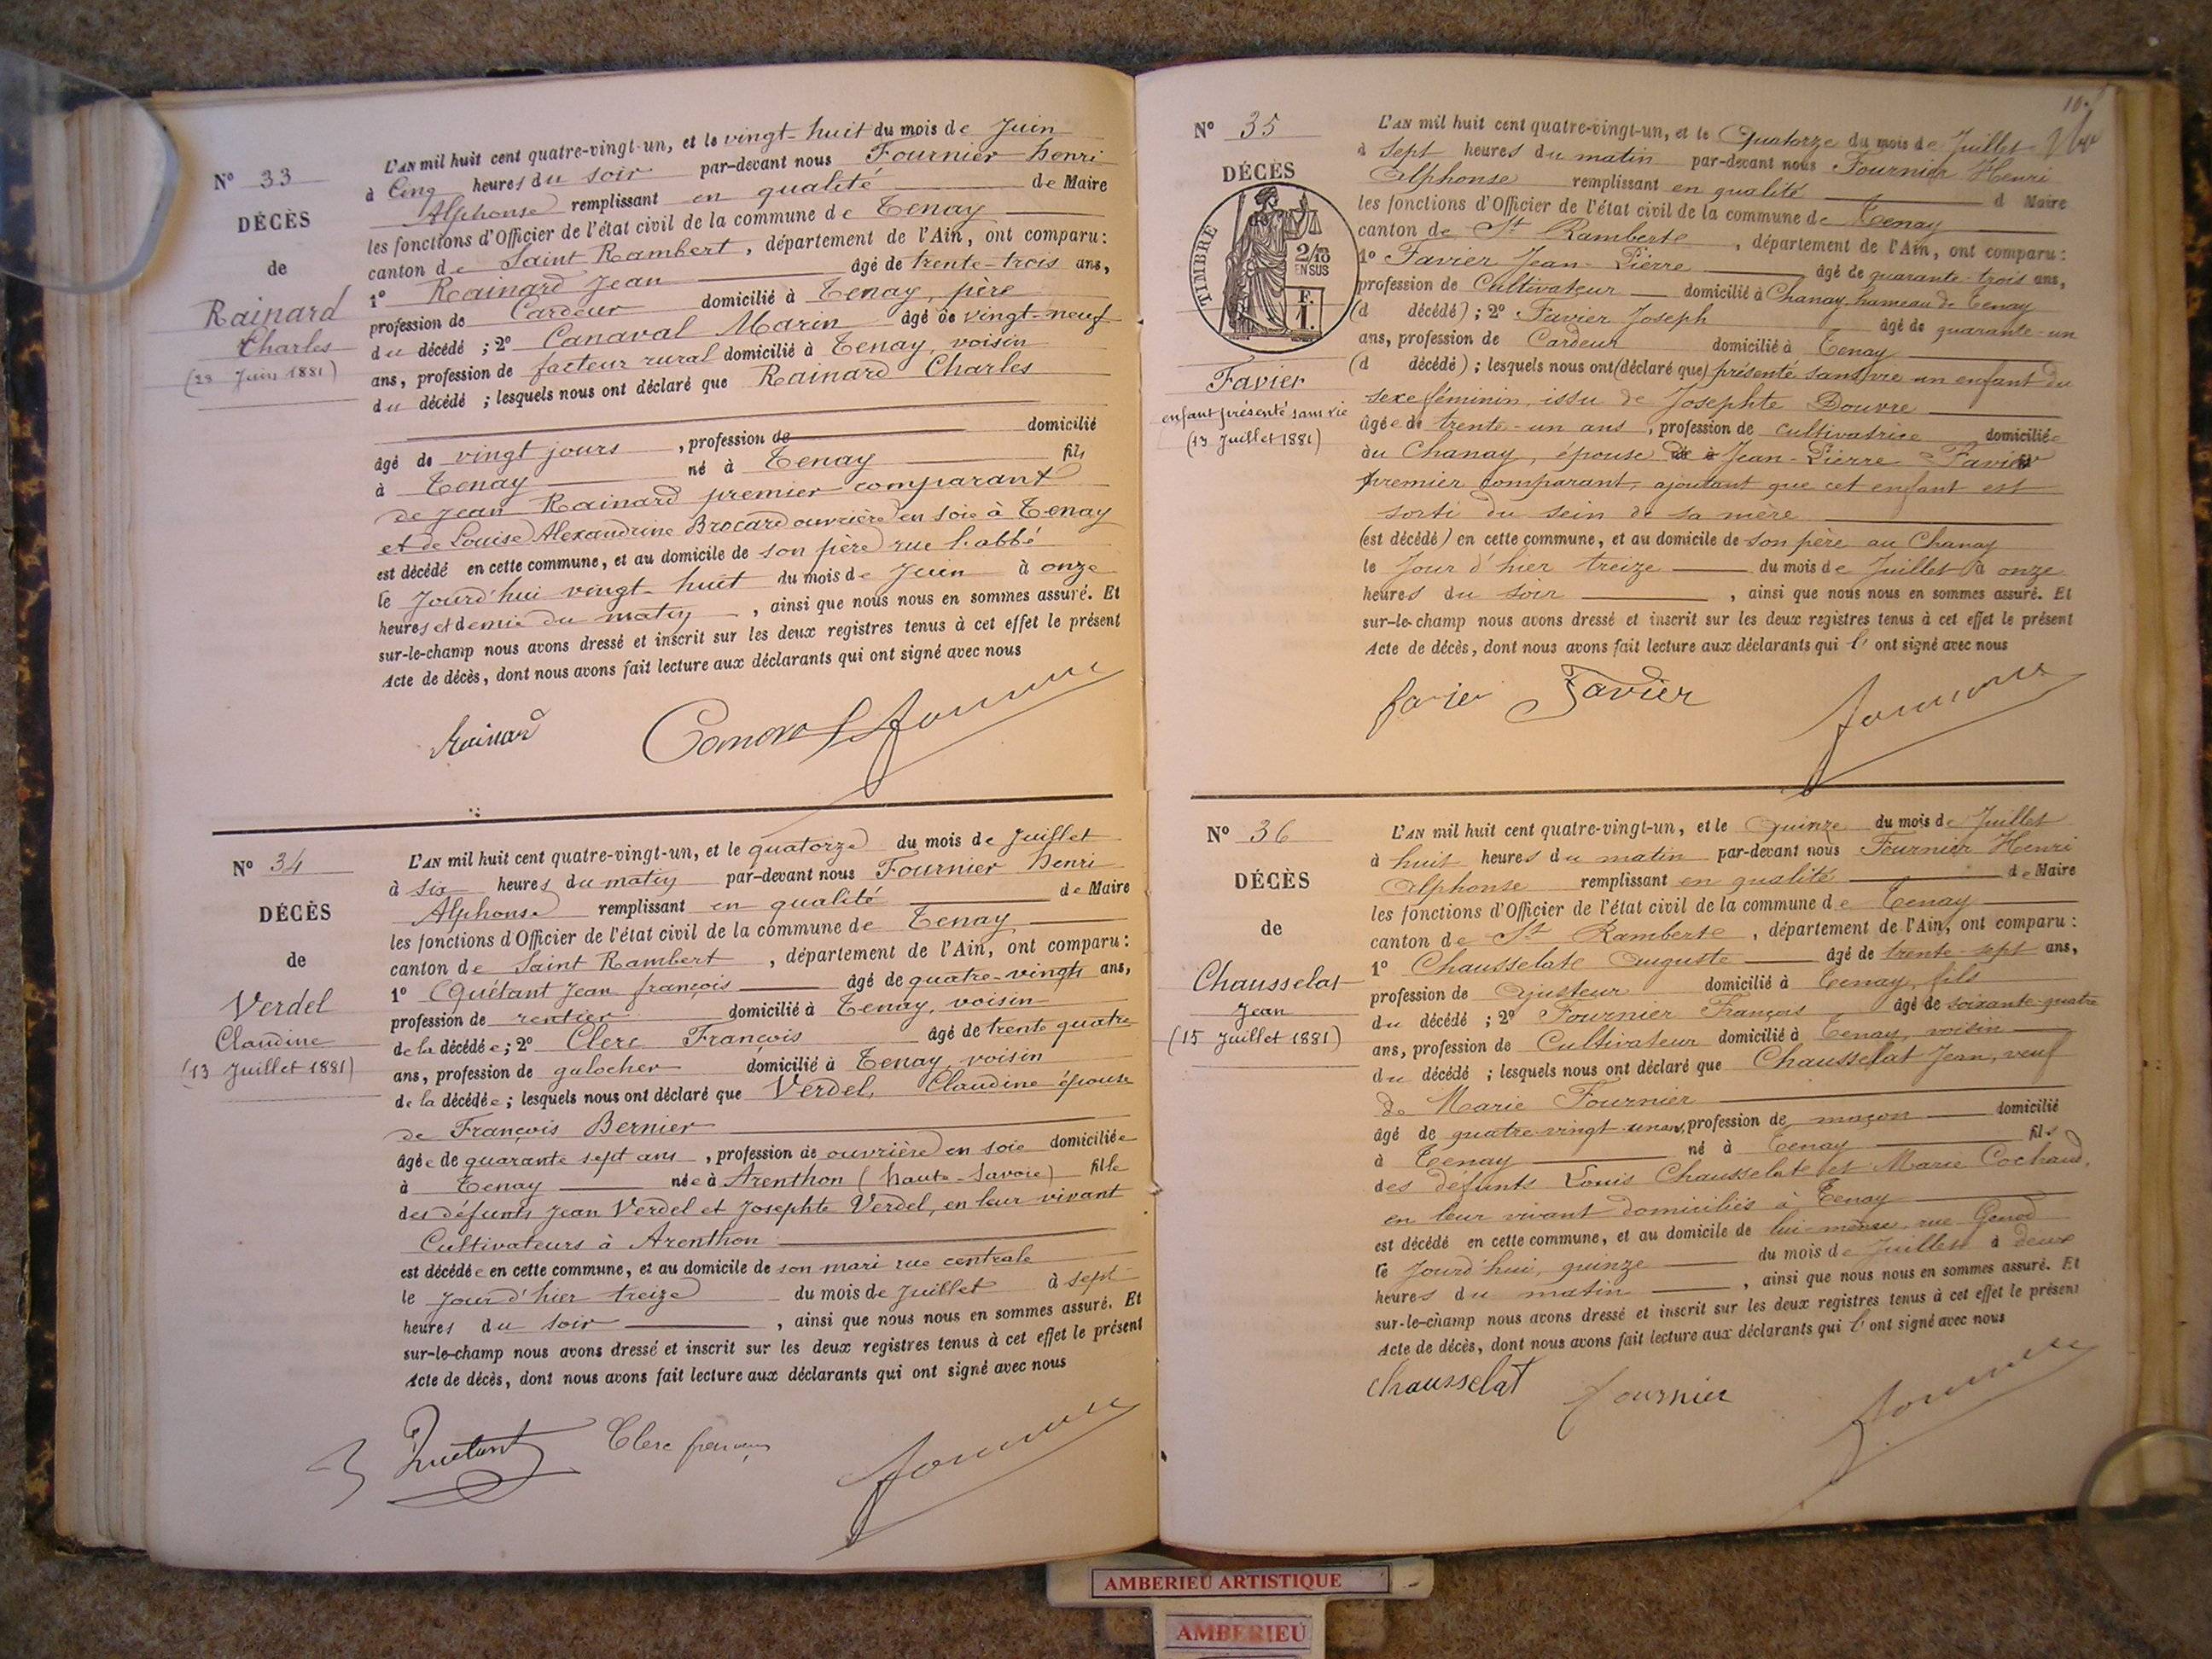 N° 33
DÉCÈS
de
Rainard
Charles
(28 Juin 1881)
L'AN mil huit cent quatre-vingt-un, et le vingt-huit du mois de Juin
à Cinq heures du soir par-devant nous Fournier henri
Alphonse remplissant en qualité de Maire
les fonctions d'Officier de l'état civil de la commune de Tenay
canton de Saint Rambert, département de l'Ain, ont comparu:
1° Rainard Jean âgé de trente-trois ans,
profession de Cardeur domicilié à Tenay, père
du décédé ; 2° Canaval Marin âgé de vingt-neuf
ans, profession de facteur rural domicilié à Tenay, voisin
du décédé ; lesquels nous ont déclaré que Rainard Charles
âgé de vingt jours, profession de domicilié
à Tenay né à Tenay fils
de Jean Rainard premier comparant
et de Louise Alexandrine Brocard ouvrière en soie à Tenay
est décédé en cette commune, et au domicile de son père rue l'abbé
le Jourd'hui vingt-huit du mois de Juin à onze
heures et demie du matin, ainsi que nous nous en sommes assuré. Et
sur-le-champ nous avons dressé et inscrit sur les deux registres tenus à cet effet le présent
Acte de décès, dont nous avons fait lecture aux déclarants qui ont signé avec nous
Rainard
N° 34
DÉCÈS
de
Verdel
Claudine
(13 Juillet 1881)
L'AN mil huit cent quatre-vingt-un, et le quatorze du mois de Juillet
à six heures du matin par-devant nous Fournier henri
Alphonse remplissant en qualité de Maire
les fonctions d'Officier de l'état civil de la commune de Tenay
canton de Saint Rambert, département de l'Ain, ont comparu:
1° Quétant Jean françois âgé de quatre-vingts ans,
profession de rentier domicilié à Tenay, voisin
de la décédée; 2° Clerc François âgé de trente quatre
ans, profession de galocher domicilié à Tenay, voisin
de la décédée; lesquels nous ont déclaré que Verdel, Claudine épouse
de François Bernier
âgée de quarante sept ans, profession de ouvrière en soie domiciliée
à Tenay née à Arenthon (haute-Savoie) fille
des défunts Jean Verdel et Josephte Verdel, en leur vivant
Cultivateurs à Arenthon
est décédée en cette commune, et au domicile de son mari rue centrale
le Jour d'hier treize du mois de Juillet à sept
heures du soir, ainsi que nous nous en sommes assuré. Et
sur-le-champ nous avons dressé et inscrit sur les deux registres tenus à cet effet le présent
Acte de décès, dont nous avons fait lecture aux déclarants qui ont signé avec nous
Quétant Clerc françois
N° 35
DÉCÈS
TIMBRE
2/10
EN SUS
F.
1.
Favier
enfant présenté sans vie
(13 Juillet 1881)
L'AN mil huit cent quatre-vingt-un, et le Quatorze du mois de Juillet
à sept heures du matin par-devant nous Fournier Henri
Alphonse remplissant en qualité d Maire
les fonctions d'Officier de l'état civil de la commune de Tenay
canton de St Ramberte, département de l'Ain, ont comparu:
1° Favier Jean-Pierre âgé de quarante-trois ans,
profession de Cultivateur domicilié à Chanay hameau de Tenay
(d décédé) ; 2° Favier Joseph âgé de quarante-un
ans, profession de Cardeur domicilié à Tenay
(d décédé) ; lesquels nous ont (déclaré que) présenté sans vie un enfant du
sexe féminin, issu de Josephte Douvre
âgée de trente-un ans, profession de cultivatrice domiciliée
au Chanay, épouse de Jean-Pierre Favier
premier comparant, ajoutant que cet enfant est
sorti du sein de sa mère
(est décédé) en cette commune, et au domicile de son père au Chanay
le Jour d'hier treize du mois de Juillet à onze
heures du soir, ainsi que nous nous en sommes assuré. Et
sur-le-champ nous avons dressé et inscrit sur les deux registres tenus à cet effet le présent
Acte de décès, dont nous avons fait lecture aux déclarants qui l' ont signé avec nous
favier Favier
N° 36
DÉCÈS
de
Chausselat
Jean
(15 Juillet 1881)
L'AN mil huit cent quatre-vingt-un, et le Quinze du mois de Juillet
à huit heures du matin par-devant nous Fournier Henri
Alphonse remplissant en qualité de Maire
les fonctions d'Officier de l'état civil de la commune de Tenay
canton de St Ramberte, département de l'Ain, ont comparu:
1° Chausselate Auguste âgé de trente-sept ans,
profession de Ajusteur domicilié à Tenay, fils
du décédé ; 2° Fournier François âgé de soixante-quatre
ans, profession de Cultivateur domicilié à Tenay, voisin
du décédé ; lesquels nous ont déclaré que Chausselat Jean, veuf
de Marie Fournier
âgé de quatre-vingt-un ans, profession de maçon domicilié
à Tenay né à Tenay fils
des défunts Louis Chausselate et Marie Cochaud,
en leur vivant domiciliés à Tenay
est décédé en cette commune, et au domicile de lui-même, rue Genod
le Jourd'hui, quinze du mois de Juillet à deux
heures du matin, ainsi que nous nous en sommes assuré. Et
sur-le-champ nous avons dressé et inscrit sur les deux registres tenus à cet effet le présent
Acte de décès, dont nous avons fait lecture aux déclarants qui l' ont signé avec nous
Chausselat fournier
AMBERIEU ARTISTIQUE
AMBERIEU